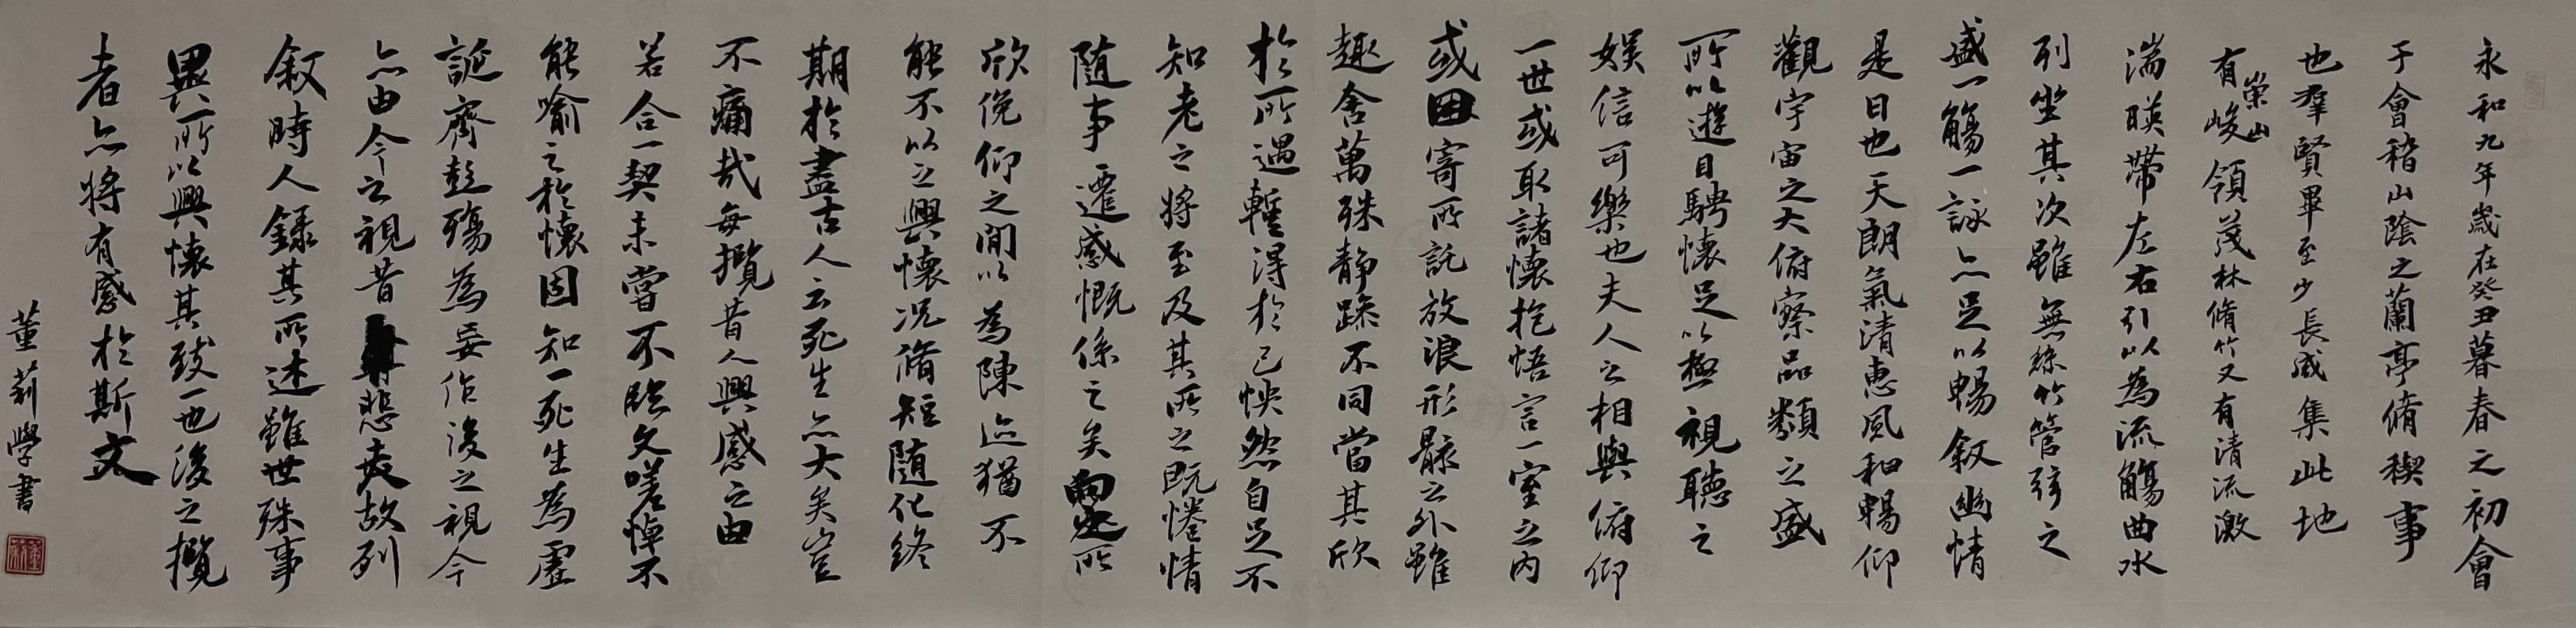 永和九年歲在癸丑暮春之初會
于會稽山陰之蘭亭脩稧事
也羣賢畢至少長咸集此地
有崇山峻領茂林脩竹又有清流激
湍暎帶左右引以為流觴曲水
列坐其次雖無絲竹管弦之
盛一觴一詠亦足以暢叙幽情
是日也天朗氣清惠風和暢仰
觀宇宙之大俯察品類之盛
所以遊目騁懷足以極視聽之
娛信可樂也夫人之相與俯仰
一世或取諸懷抱悟言一室之內
或因寄所託放浪形骸之外雖
趣舍萬殊静躁不同當其欣
於所遇暫得於己怏然自足不
知老之將至及其所之既惓情
随事遷感慨係之矣向之所
欣俛仰之間以為陳迹猶不
能不以之興懷況脩短随化終
期於盡古人云死生亦大矣豈
不痛哉每攬昔人興感之由
若合一契未嘗不臨文嗟悼不
能喻之於懷固知一死生為虛
誕齊彭殤為妄作後之視今
亦由今之視昔悲夫故列
叙時人錄其所述雖世殊事
異所以興懷其致一也後之攬
者亦將有感於斯文
董莉學書